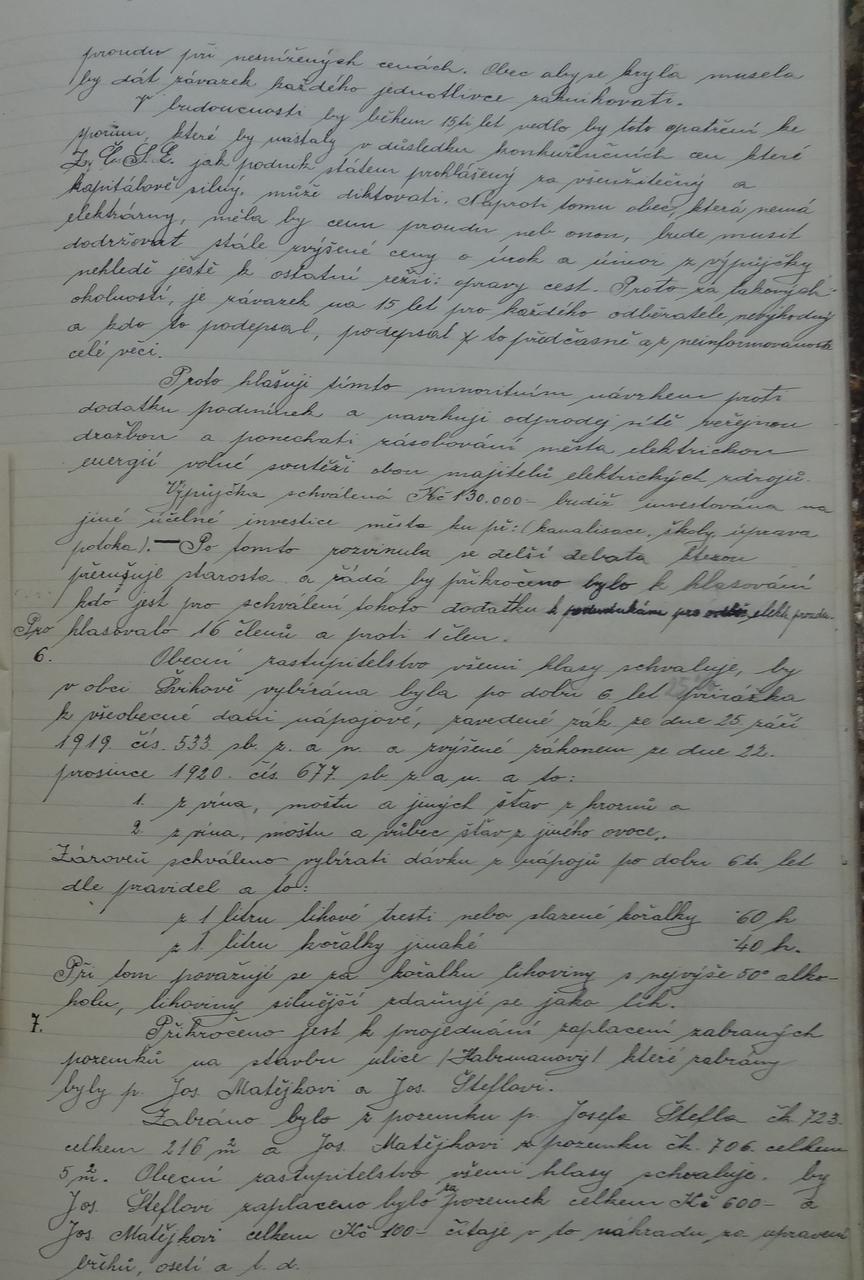 proudu při nesnížených cenách. Obec aby se kryla musela
by dát závazek každého jednotlivce zaknihovati.
V budoucnosti by během 15ti let vedlo by toto opatření ke
sporům, které by nastaly v důsledku konkurenčních cen které
Z.Č.S.E. jak podnik státem prohlášený za všeužitečný a
kapitálově silný, může diktovati. Naproti tomu obec, která nemá
elektrárny, měla by cenu proudu neb onou, bude musit
dodržovat stále zvýšené ceny o úrok a úmor z výpůjčky
nehledě ještě k ostatní režii: opravy cest. Proto za takových
okolností, je závazek na 15 let pro každého odběratele nevýhodný
a kdo to podepsal, podepsal to předčasně a z neinformovanosti
celé věci.
Proto hlašuji tímto minoritním návrhem proti
dodatku podmínek a navrhuji odprodej sítě veřejnou
dražbou a ponechati zásobování města elektrickou
energií volné soutěži obou majitelů elektrických zdrojů.
Výpůjčka schválená Kč 130.000- budiž investována na
jiné účelné investice města ku př: (kanalisace, školy, úprava
potoka). — Po tomto rozvinula se delší debata kterou
přerušuje starosta a žádá by přikročeno bylo k hlasování
kdo jest pro schválení tohoto dodatku k elekt. proudu.
Pro hlasovalo 16 členů a proti 1 člen.
6. Obecní zastupitelstvo všemi hlasy schvaluje, by
v obci Švihově vybírána byla po dobu 6 let 25% přirážka
k všeobecné dani nápojové, zavedené zák ze dne 25 září
1919. čís. 533 sb. z. a n. a zvýšené zákonem ze dne 22.
prosince 1920. čís. 677 sb z a n. a to:
1. z vína, moštu a jiných šťav z hroznů a
2. z vína, moštu a vůbec šťav z jiného ovoce.
Zároveň schváleno vybírati dávku z nápojů po dobu 6ti let
dle pravidel a to:
z 1 litru lihové tresti nebo slazené kořalky ·60 h
z 1. litru kořalky jinaké ·40 h.
Při tom považují se za kořalku lihoviny s nejvýše 50° alko-
holu, lihoviny silnější zdaňují se jako líh.
7. Přikročeno jest k projednání zaplacení zabraných
pozemků na stavbu ulice /Habrmanovy/ které zabrány
byly p. Jos. Matějkovi a Jos. Šteflovi.
Zabráno bylo z pozemku p. Josefa Štefla čk. 723.
celkem 216 m² a Jos. Matějkovi z pozemku čk. 706. celkem
5 m². Obecní zastupitelstvo všemi hlasy schvaluje. by
Jos. Šteflovi zaplaceno bylo za pozemek celkem Kč 600- a
Jos. Matějkovi celkem Kč 100- čítaje v to náhradu za upravení
břihů, osetí a t. d.